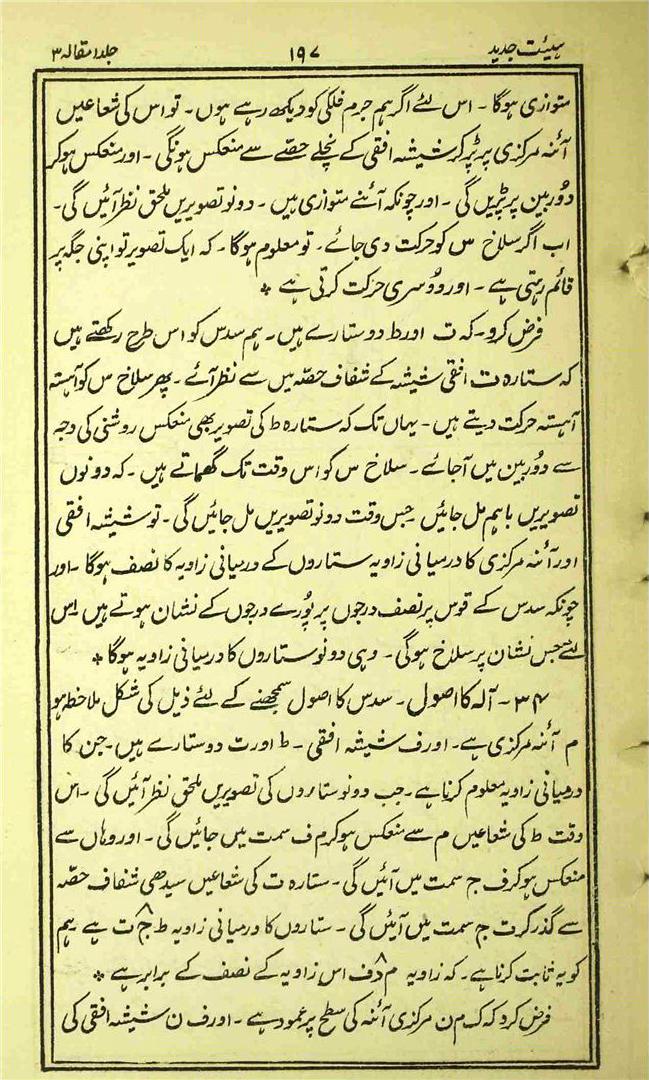 ہیئت جدید ۱۹۷ جلد۱ مقالہ ۳
متوازی ہوگا ۔ اس لئے اگر ہم جرم فلکی کو دیکھ رہے ہوں ۔ تو اس کی شعاعیں
آئنہ مرکزی پر پڑ کر شیشہ افقی کے نچلے حصّے سے منعکس ہونگی ۔ اور منعکس ہوکر
دُوربین پر پڑیں گی ۔ اور چونکہ آئنے متوازی ہیں ۔ دونو تصویریں ملحق نظر آئیں گی ۔
اب اگر سلاخ س کو حرکت دی جائے ۔ تو معلوم ہوگا ۔ کہ ایک تصویر تو اپنی جگہ پر
قائم رہتی ہے ۔ اور دُوسری حرکت کرتی ہے *
فرض کرو ۔ کہ ت اور ط دو ستارے ہیں ۔ ہم سدس کو اس طرح رکھتے ہیں
کہ ستارہ ت افقی شیشہ کے شفاف حصّہ میں سے نظر آئے ۔ پھر سلاخ س کو آہستہ
آہستہ حرکت دیتے ہیں ۔ یہاں تک کہ ستارہ ط کی تصویر بھی منعکس روشنی کی وجہ
سے دُوربین میں آجائے ۔ سلاخ س کو اس وقت تک گھماتے ہیں ۔ کہ دونوں
تصویریں باہم مل جائیں جس وقت دونو تصویریں مل جائیں گی ۔ تو شیشہ افقی
اور آئنہ مرکزی کا درمیانی زاویہ ستاروں کے درمیانی زاویہ کا نصف ہوگا ۔ اور
چونکہ سدس کے قوس پر نصف درجوں پر پُورے درجوں کے نشان ہوتے ہیں اس
لئے جس نشان پر سلاخ ہوگی ۔ وہی دونو ستاروں کا درمیانی زاویہ ہوگا *
۳۴ ۔ آلہ کا اصول ۔ سدس کا اصول سمجھنے کے لئے ذیل کی شکل ملاحظہ ہو
م آئنہ مرکزی ہے ۔ اور ف شیشہ افقی ۔ ط اور ت دو ستارے ہیں ۔ جن کا
درمیانی زاویہ معلوم کرنا ہے ۔ جب دونو ستاروں کی تصویریں ملحق نظر آئیں گی ۔ اس
وقت ط کی شعاعیں م سے منعکس ہوکر م ف سمت میں جائیں گی ۔ اور وہاں سے
منعکس ہوکر ف ج سمت میں آئیں گی ۔ ستارہ ت کی شعاعیں سیدھی شفاف حصّہ
سے گذر کر ت ج سمت میں آئیں گی ۔ ستاروں کا درمیانی زاویہ ط ج ت ہے ہم
کو یہ ثابت کرنا ہے ۔ کہ زاویہ م د ف اس زاویہ کے نصف کے برابر ہے *
فرض کرو کہ ک م ن مرکزی آئنہ کی سطح پر عمود ہے ۔ اور ف ن شیشہ افقی کی